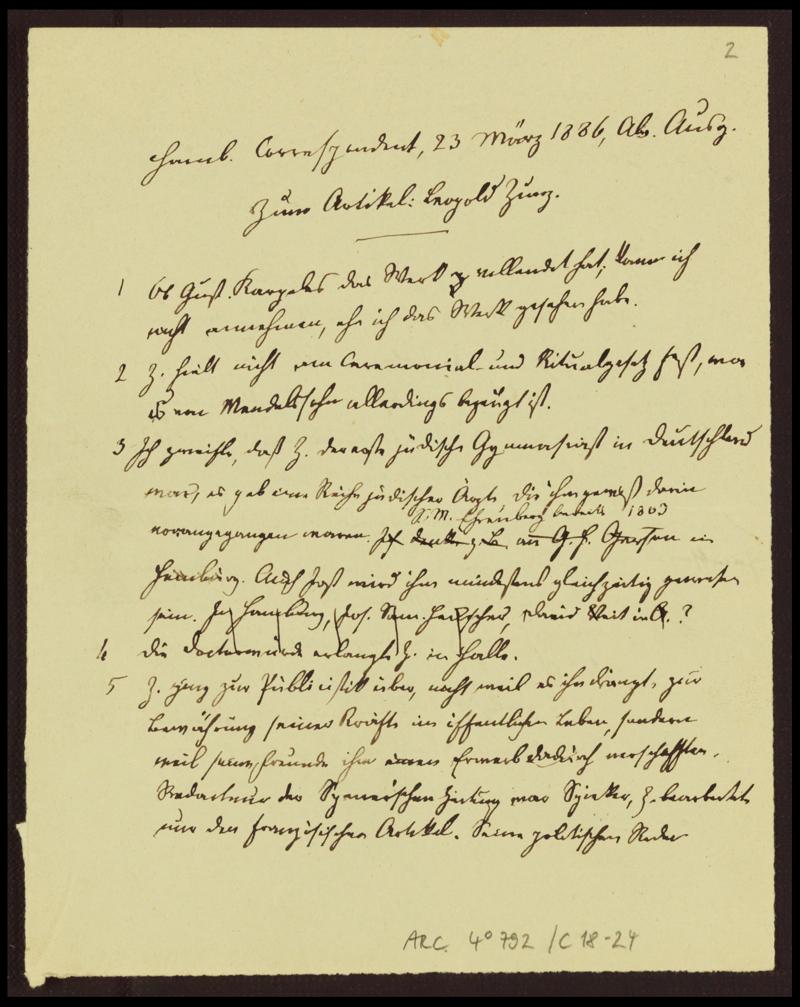 2
Hamb. Correspondent, 23 März 1886, Ab. Ausg.
Zum Artikel: Leopold Zunz.
1 Ob Gust. Karpeles das Werk vollendet hat, kann ich
nicht annehmen, ehe ich das Werk gesehen habe.
2 Z. hielt nicht am Ceremonial- und Ritualgesetz fest, was
von Mendelssohn allerdings bezeugt ist.
3 Ich zweifle, daß Z. der erste jüdische Gymnasiast in Deutschland
war, es gab eine Reihe jüdischer Ärzte die ihm gewiß darin
S. M. Ehrenberg bereits 1803
vorangegangen waren. Ich denke z. B. an G. H. Gerson in
Hamburg. Auch Jost wird ihm mindestens gleichzeitig gewesen
sein. In Hamburg, Jos. Sam. Heckscher, David Veit in ?
4 die Doctorwürde erlangte Z. in Halle.
5 Z. ging zur Publicistik über, nicht weil es ihn drängte, zur
Bewährung seiner Kräfte im öffentlichen Leben, sondern
weil seine Freunde ihm einen Erwerb dadurch verschafften.
Redacteur der Spener'schen Zeitung war Spiker, Z. bearbeitete
nur den französischen Artikel. Seine politischen Reden
ARC. 4° 792 /C 18-24